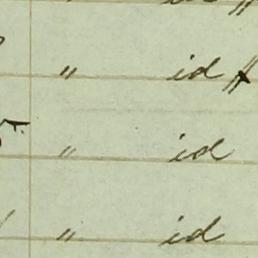 " id
" id
" id